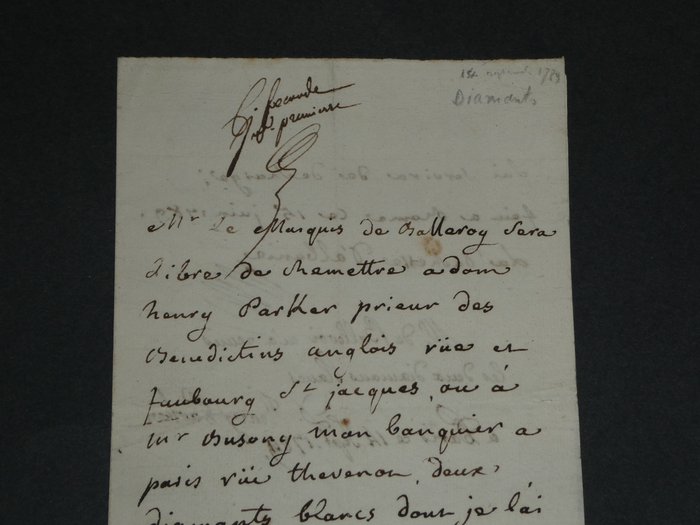 1789
Diamants
seconde
premiere
Mr Le Marquis de Balleroy sera
Libre de Remettre a dom
henry Parker prieur des
Benedictins anglois rüe et
faubourg St jacques, ou à
mr Busony mon banquier a
paris rüe thevenon, deux
diamants blancs dont je l'ai